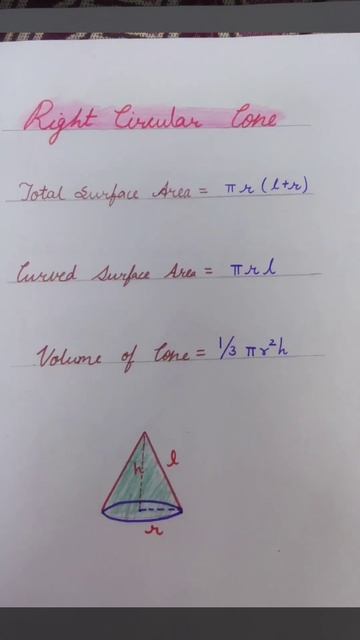 Right Circular Cone
Total Surface Area = πr(l+r)
Curved Surface Area = πrl
Volume of Cone = 1/3 πr²h
h
l
r